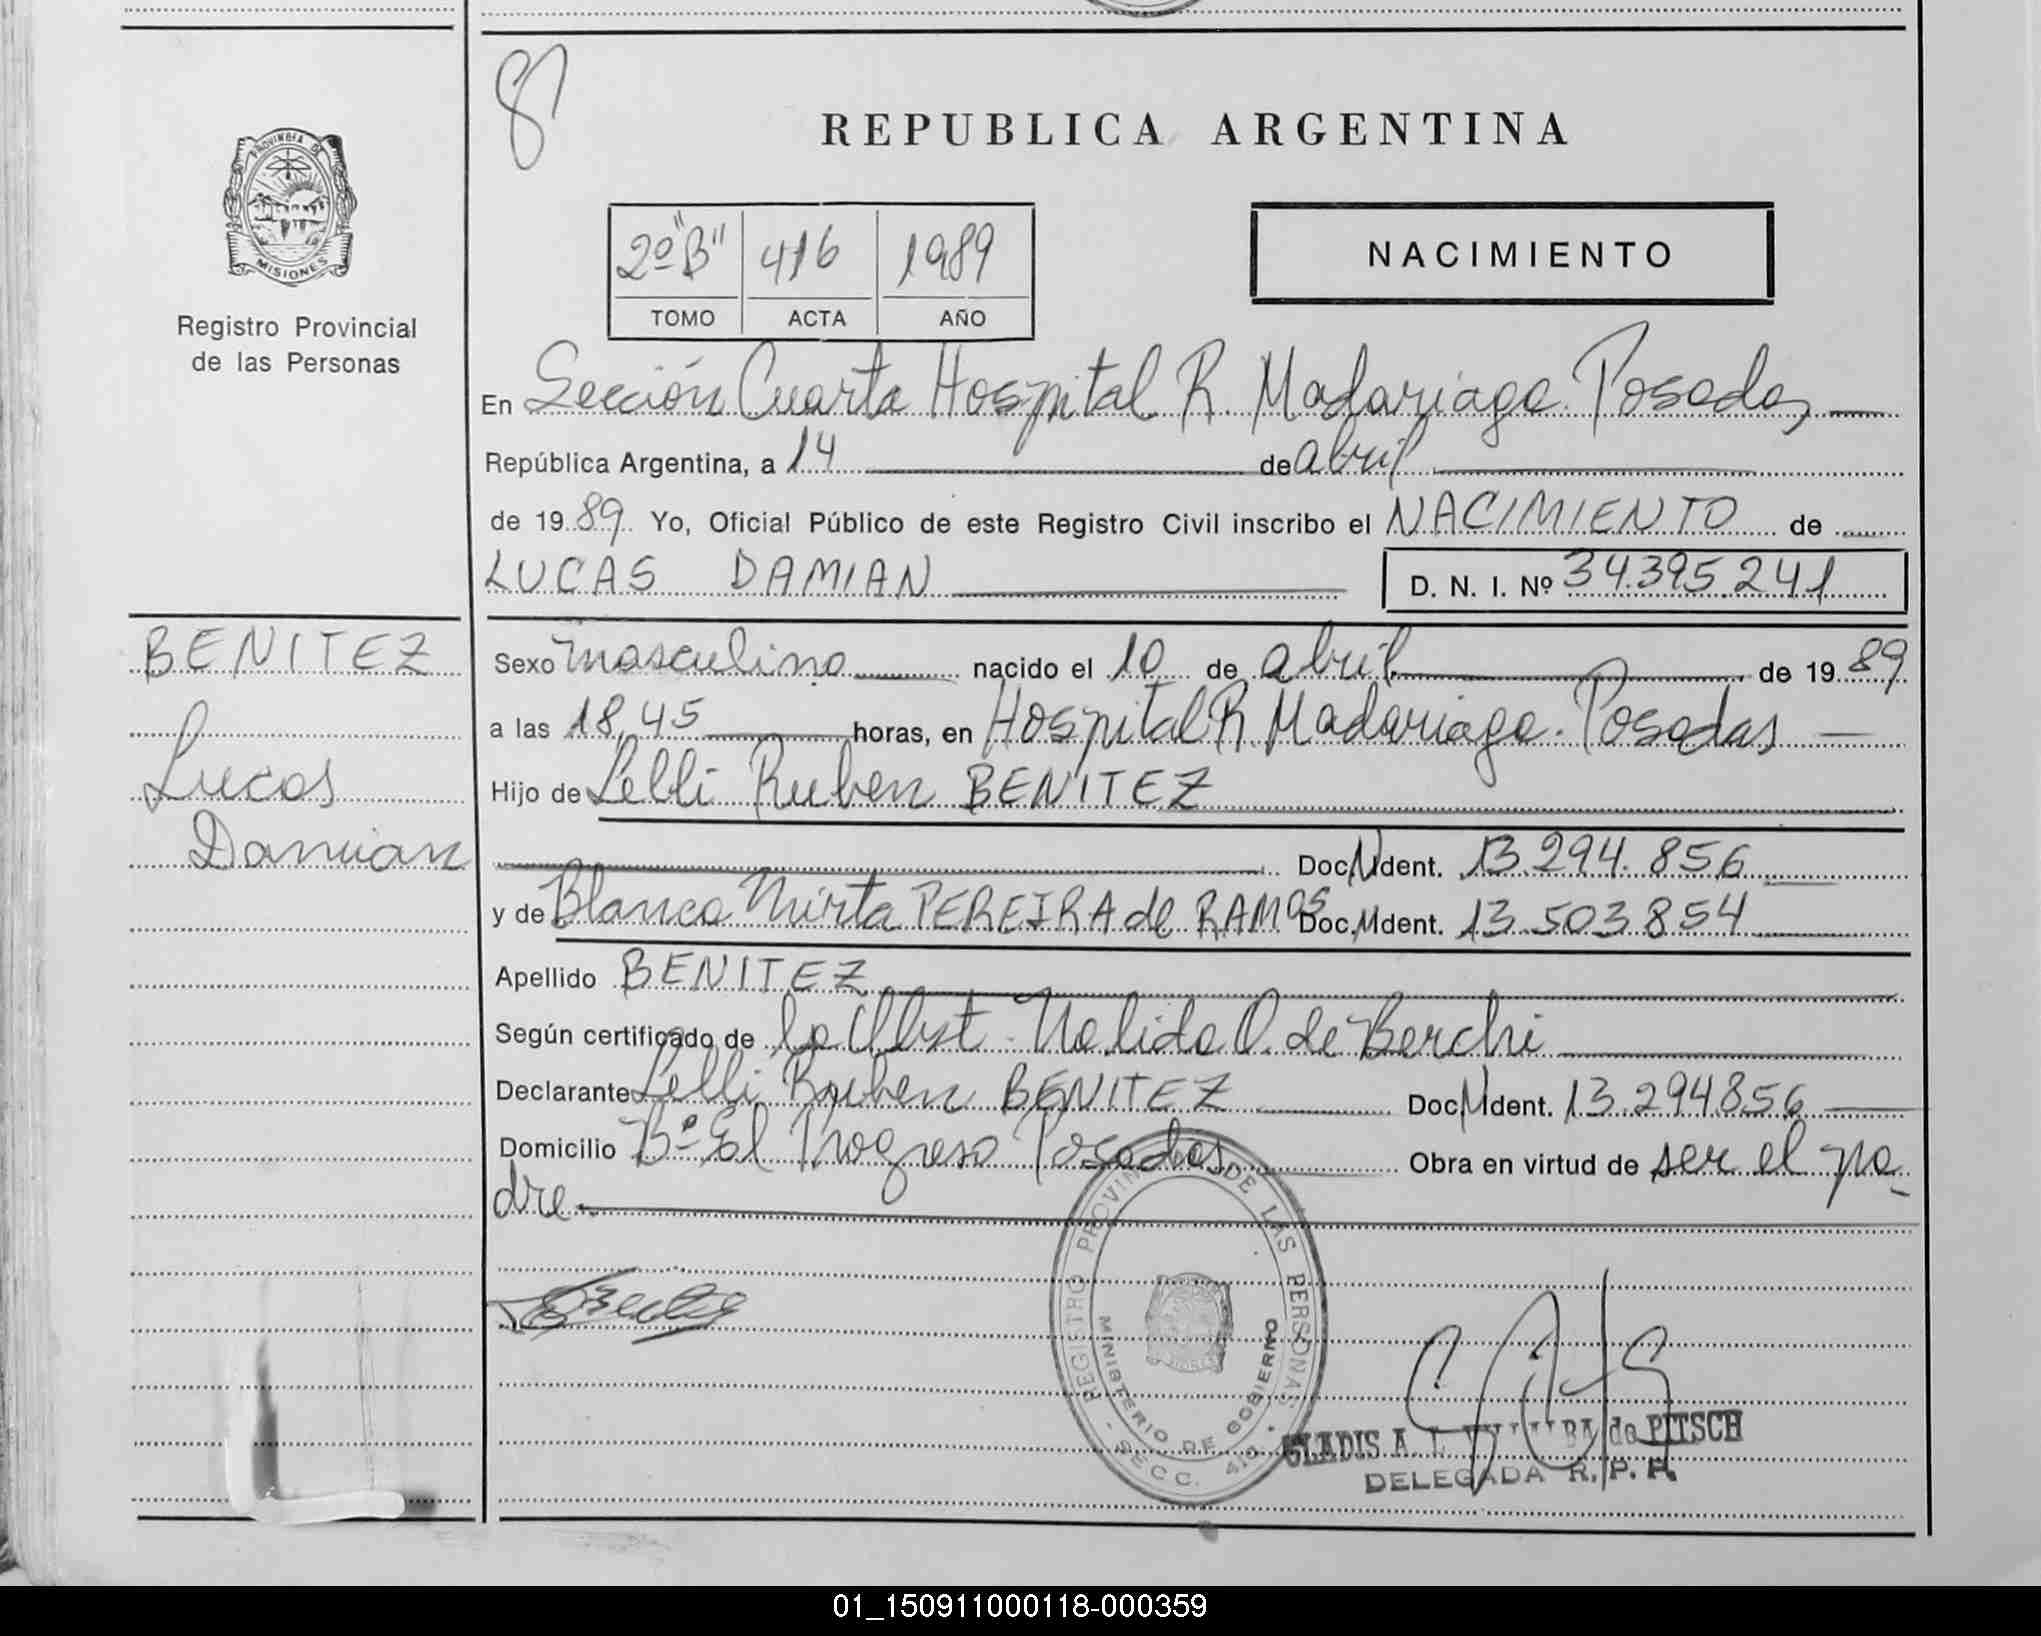 8
PROVINCIA DE
MISIONES
Registro Provincial
de las Personas
REPUBLICA ARGENTINA
2º "B" 416 1989
TOMO ACTA AÑO
NACIMIENTO
En Sección Cuarta Hospital R. Madariaga. Posadas
República Argentina, a 14 de abril
de 1989 Yo, Oficial Público de este Registro Civil inscribo el NACIMIENTO de
LUCAS DAMIAN D. N. I. Nº 34.395.241
BENITEZ
Lucas
Damian
Sexo masculino nacido el 10 de abril de 1989
a las 18,45 horas, en Hospital R. Madariaga. Posadas
Hijo de Lelli Ruben BENITEZ
Doc. N Ident. 13.294.856
y de Blanca Mirta PEREIRA de RAMOS Doc. N Ident. 13.503.854
Apellido BENITEZ
Según certificado de la Obst. Nelida O. de Berchi
Declarante Lelli Ruben BENITEZ Doc. N Ident. 13.294.856
Domicilio Bº El Progreso Posadas Obra en virtud de ser el pa-
dre
REGISTRO PROVINCIAL DE LAS PERSONAS
MINISTERIO DE GOBIERNO
SECC. 4ta
GLADIS A. de PITSCH
DELEGADA R. P. P.
01_150911000118-000359